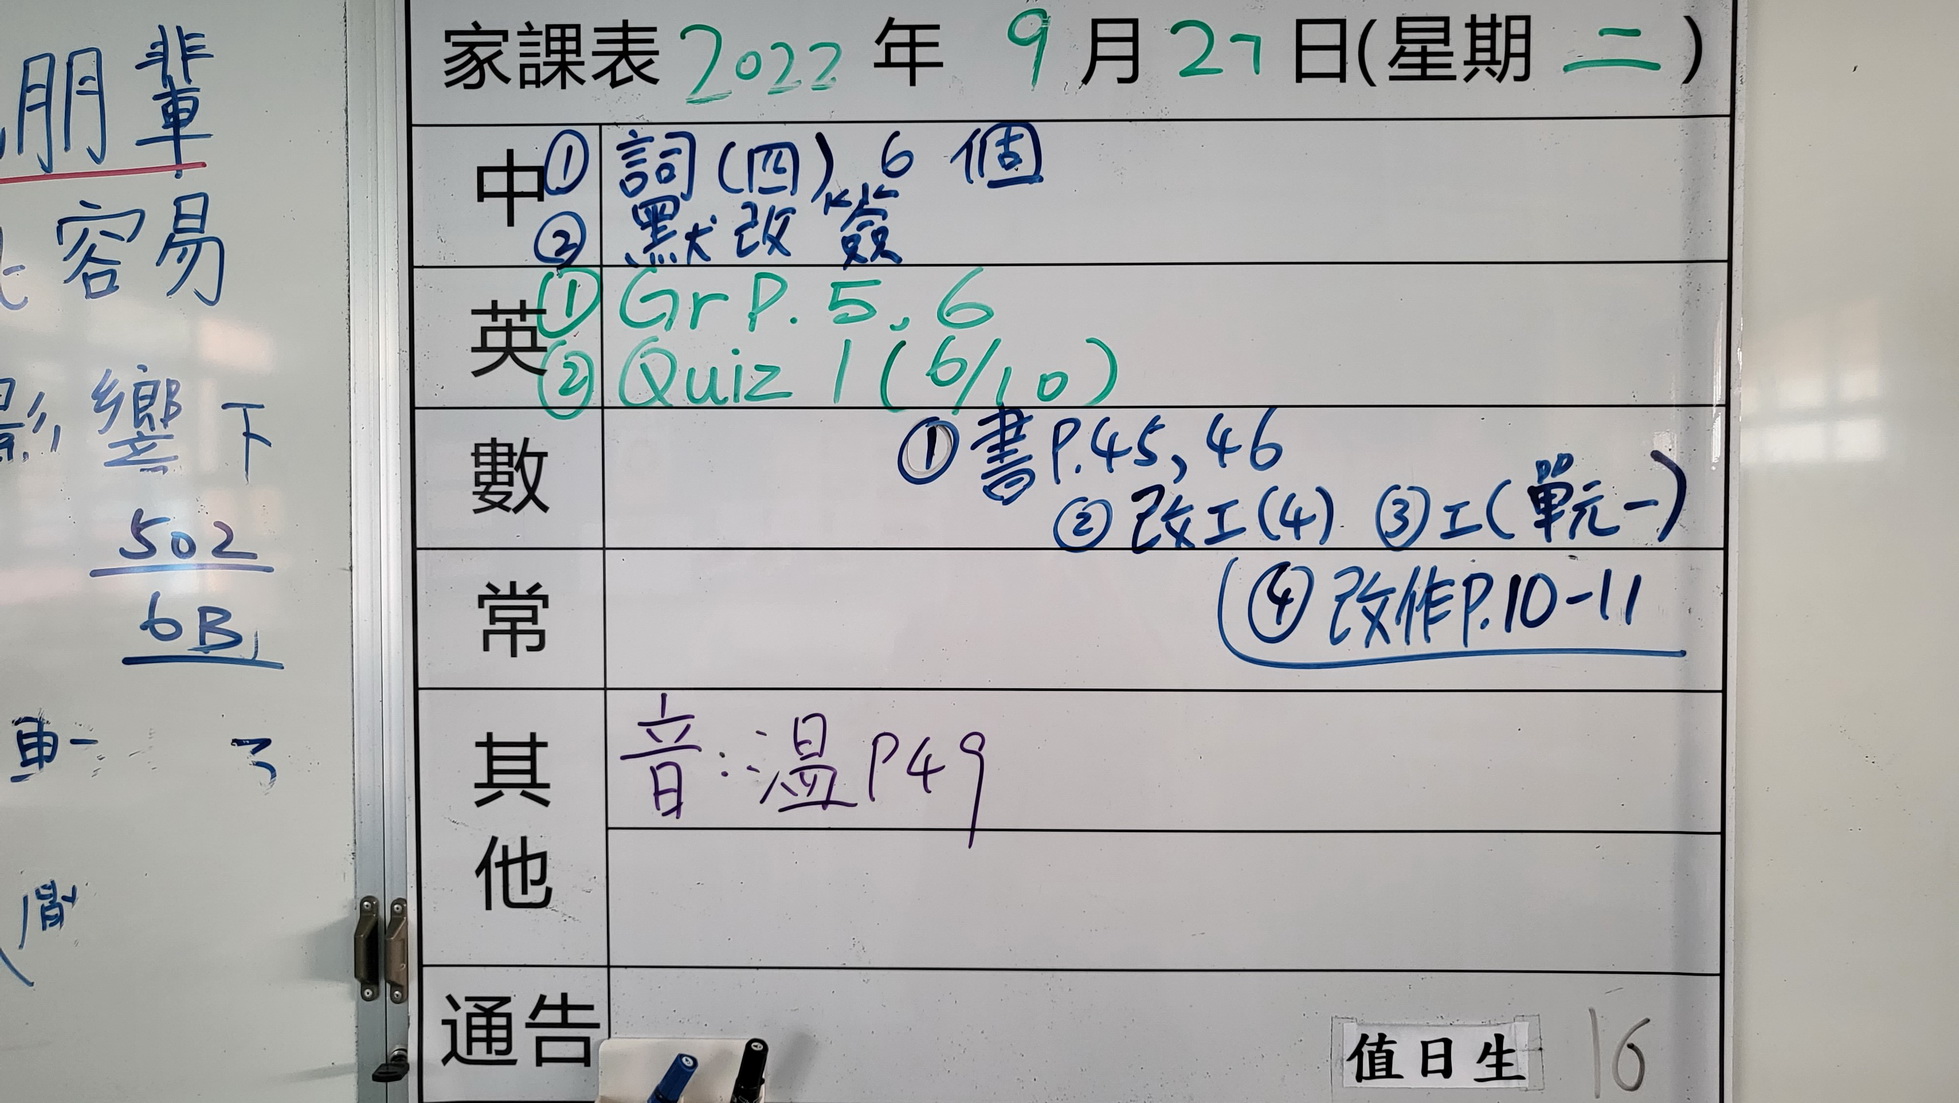 朋輩
容易
影響下
502
6B
家課表 2022 年 9 月 27 日(星期 二 )
中 ① 詞(四) 6 個
② 默改簽
英 ① Gr P. 5, 6
② Quiz 1 (6/10)
數 ① 書 P.45, 46
② 改工(4) ③ 工(單元一)
常 ④ 改作P.10-11
其他 音:溫 P49
通告
值日生 16